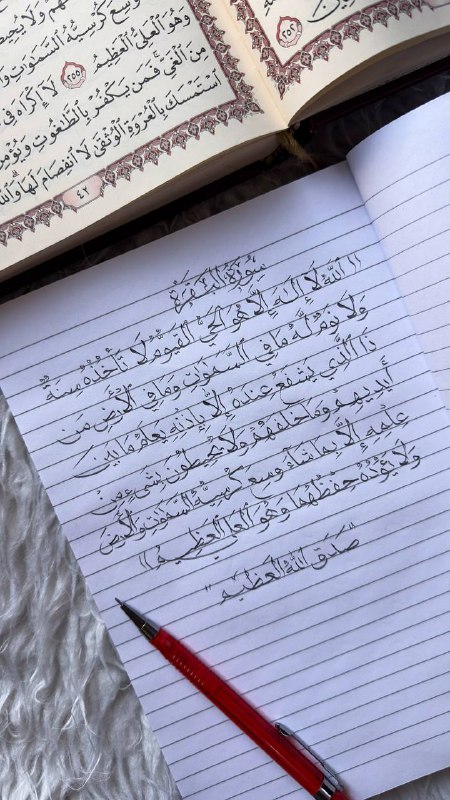 وسع كرسيه السموت
وهو العلي العظيم ٢٥٥ لا إكراه في
من الغي فمن يكفر بالطغوت ويؤمن
استمسك بالعروة الوثقى لا انفصام لها والله
٤٢
سورة البقرة
((الله لا إله إلا هو الحي القيوم لا تأخذه سنة
ولا نوم له ما في السموت وما في الأرض من
ذا الذي يشفع عنده إلا بإذنه يعلم ما بين
أيديهم وما خلفهم ولا يحيطون بشيء من
علمه إلا بما شاء وسع كرسيه السموت والأرض
ولا يؤده حفظهما وهو العلي العظيم))
"صدق الله العظيم"